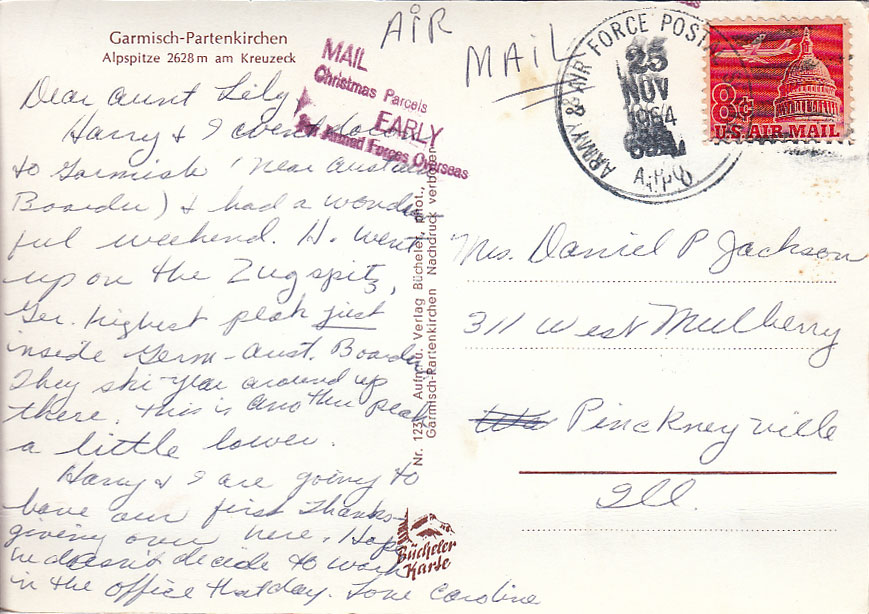 Garmisch-Partenkirchen
Alpspitze 2628 m am Kreuzeck
AIR
MAIL
MAIL
Christmas Parcels
EARLY
For Armed Forces Overseas
ARMY & AIR FORCE POSTAL
25
NOV
1964
A.P.O
8¢
U.S. AIR MAIL
Dear Aunt Lily,
Harry & I went down
to Garmish (near Austrian
Boarder) & had a wonder
ful weekend. H. went
up on the Zugspitz,
Ger. highest peak just
inside Germ-Aust. Boarder
They ski year around up
there. This is another peak
a little lower.
Harry & I are going to
have our first Thanks-
giving over here. Hope
he doesn't decide to work
in the office that day. Love Caroline
Nr. 1231 Aufn. u. Verlag Bücheler, phot.,
Garmisch-Partenkirchen Nachdruck verboten
Bücheler
Karte
Mrs. Daniel P Jackson
311 West Mulberry
Pinckneyville
Ill.